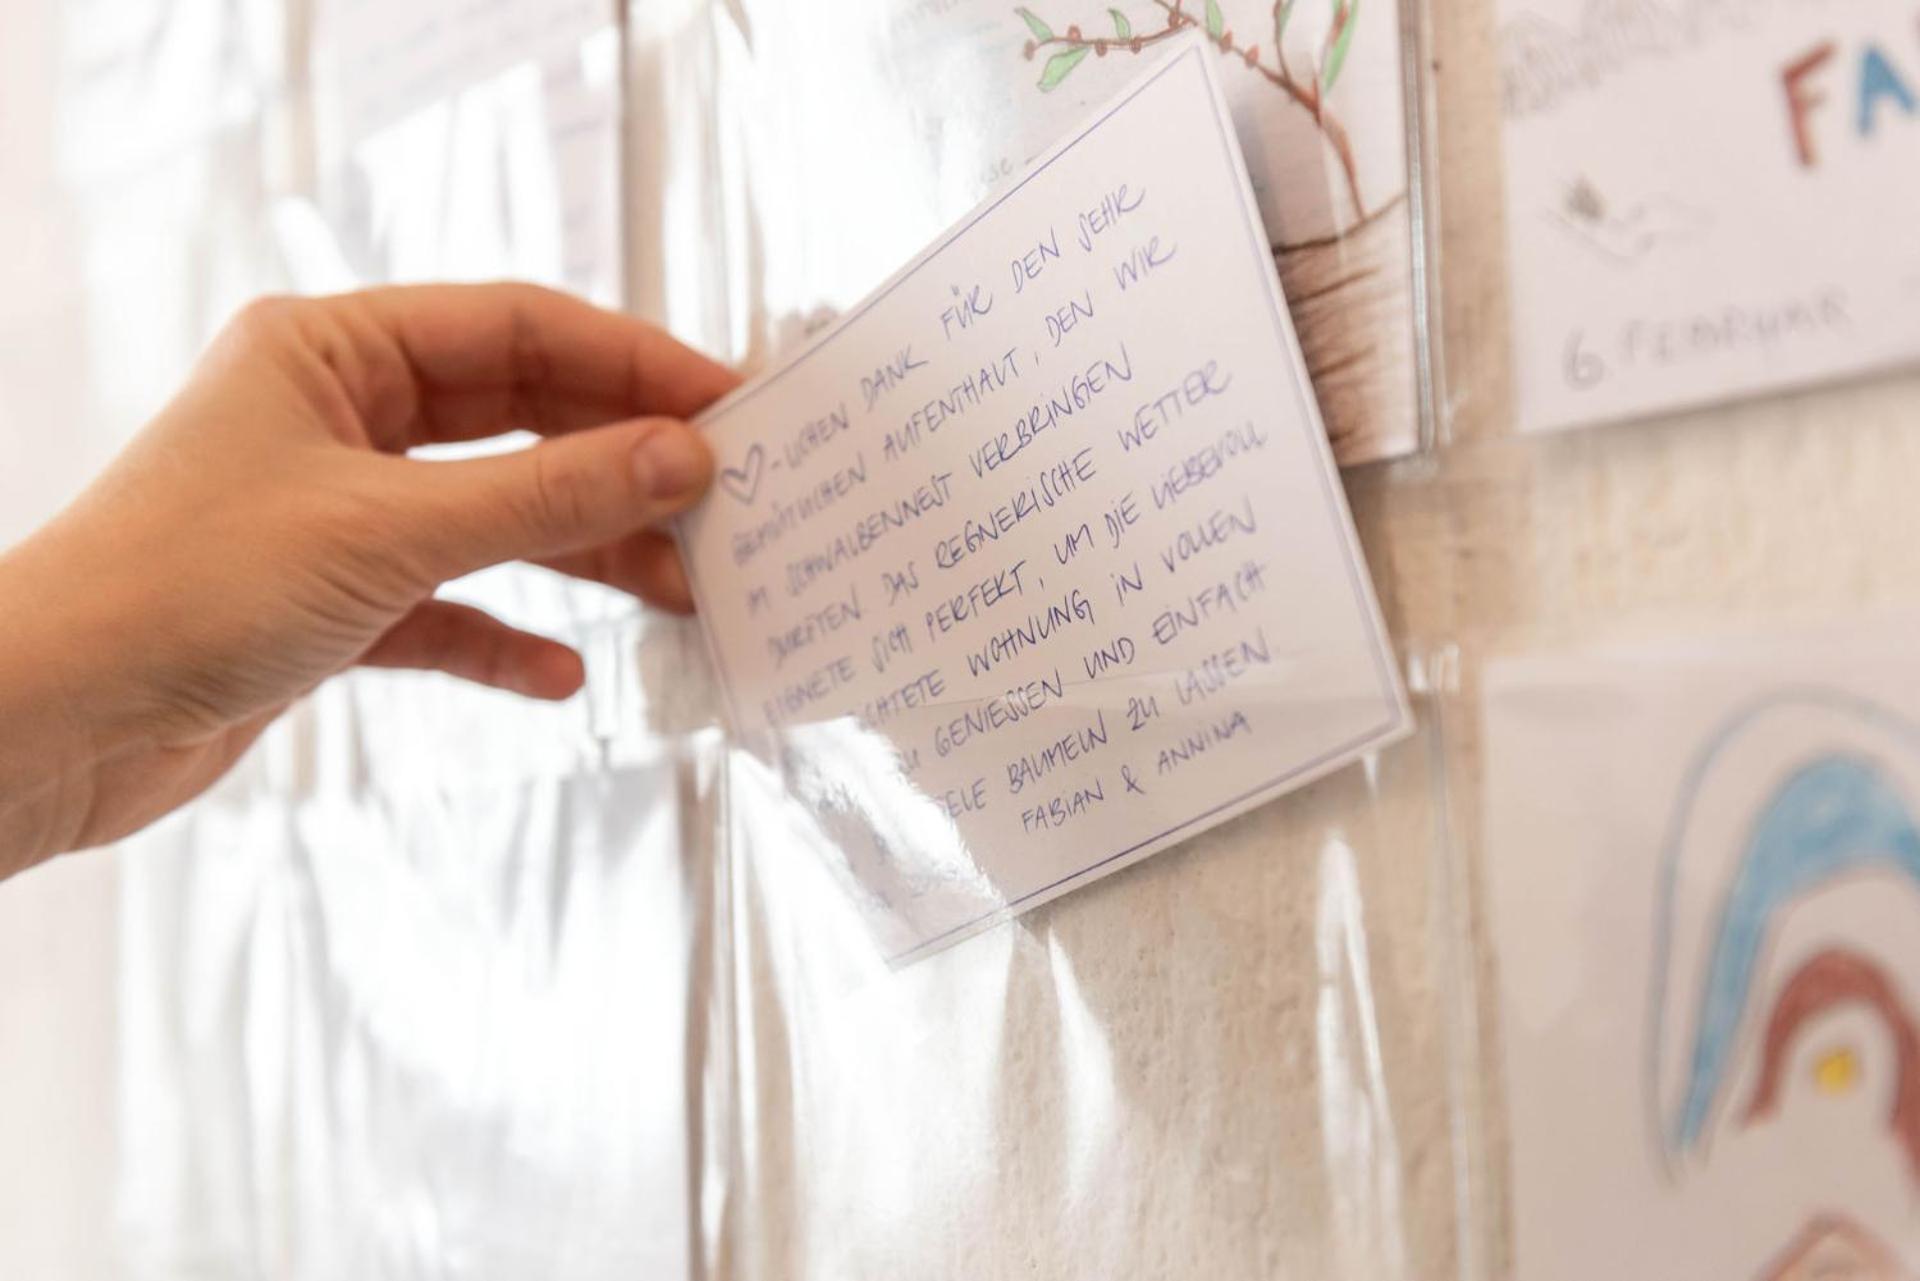 ♡-LICHEN DANK FÜR DEN SEHR
GEMÜTLICHEN AUFENTHALT, DEN WIR
IM SCHWALBENNEST VERBRINGEN
DURFTEN. DAS REGNERISCHE WETTER
EIGNETE SICH PERFEKT, UM DIE LIEBEVOLL
WOHNUNG IN VOLLEN
GENIESSEN UND EINFACH
BAUMELN ZU LASSEN.
FABIAN & ANNINA
FA
6. FEBRUAR